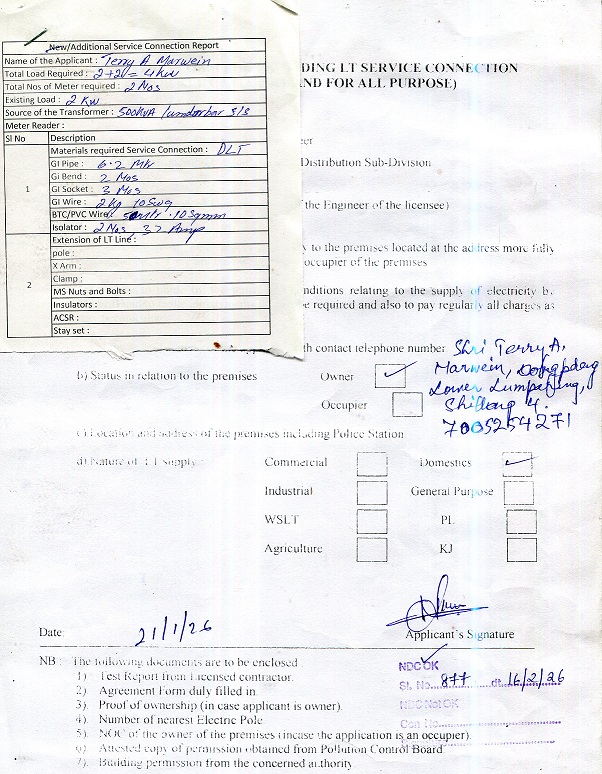 New/Additional Service Connection Report
Name of the Applicant : Terry A Marwein
Total Load Required : 2+2 = 4 KW
Total Nos of Meter required : 2 Nos
Existing Load : 2 KW
Source of the Transformer : 500KVA S/S
Meter Reader :
Sl No Description
1
Materials required Service Connection : DLT
GI Pipe : 6.2 Mtr
Gi Bend : 2 Nos
GI Socket : 3 Nos
GI Wire : 2 Kg 10 Swg
BTC/PVC Wire : 10 Sqmm
Isolator : 2 Nos, 32 Amp
2
Extension of LT Line :
pole :
X Arm :
Clamp :
MS Nuts and Bolts :
Insulators :
ACSR :
Stay set :
DING LT SERVICE CONNECTION
ND FOR ALL PURPOSE)
Distribution Sub-Division
the Engineer of the licensee)
y to the premises located at the address more fully
occupier of the premises
nditions relating to the supply of electricity b
e required and also to pay regularly all charges as
h contact telephone number Shri Terry A.
Marwein,
Lower
Shillong 4.
7005254271
b) Status in relation to the premises
Owner ✓
Occupier
c) Location and address of the premises including Police Station
d) Nature of LT supply
Commercial Domestics ✓
Industrial General Purpose
WSLT PL
Agriculture KJ
Date: 21/1/26
Applicant's Signature
NB : The following documents are to be enclosed
1) Test Report from Licensed contractor.
2) Agreement Form duly filled in.
3) Proof of ownership (in case applicant is owner).
4) Number of nearest Electric Pole.
5) NOC of the owner of the premises (incase the application is an occupier).
6) Attested copy of permission obtained from Pollution Control Board
7) Building permission from the concerned authority.
NDC OK
Sl. No. 877 dt. 16/2/26
NDC Not OK
Con No.